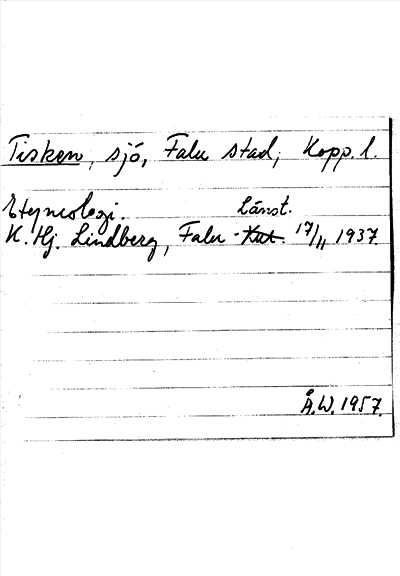 Tisken, sjö, Falu stad, Kopp. l.
Etymologi.
Länst.
K. Hj. Lindberg, Falu-Kur. 17/11 1937.
Å.W. 1957.